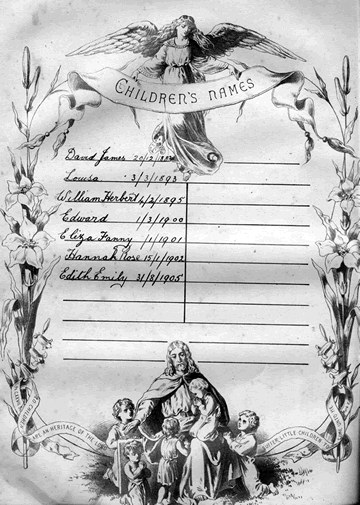 CHILDREN'S NAMES
David James 20/2/
Louisa 3/3/1893
William Herbert 4/2/1895
Edward 1/3/1900
Eliza Fanny /1/1901
Hannah Rose 15/1/1902
Edith Emily 31/8/1905
ARE AN HERITAGE OF THE
SUFFER LITTLE CHILDREN